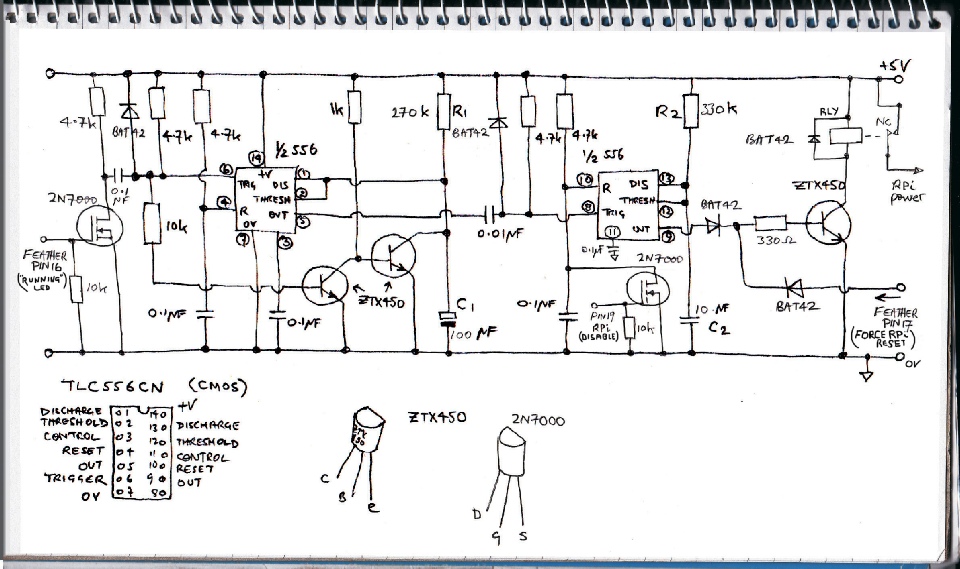 +5V
4.7k
BAT42
4.7k
4.7k
1k
270k R1
BAT42
4.7k
4.7k
R2 330k
RLY
BAT42
NC
RPi
power
½ 556
14
+V
6 TRIG DIS 1
THRESH 2
4 R OUT 5
0V
7 3
½ 556
10 R DIS 13
THRESH 12
8 TRIG
11 OUT 9
ZTX450
BAT42
330Ω
0.1µF
2N7000
10k
FEATHER
PIN16
("RUNNING"
LED
10k
0.01µF
0.1µF
2N7000
ZTX450
0.1µF
0.1µF
C1
100µF
0.1µF
PIN19
RPi
(DISABLE)
10k
10µF
C2
BAT42
FEATHER
PIN17
(FORCE RPi
RESET)
0V
TLC556CN (CMOS)
DISCHARGE 1 14 +V
THRESHOLD 2 13 DISCHARGE
CONTROL 3 12 THRESHOLD
RESET 4 11 CONTROL
OUT 5 10 RESET
TRIGGER 6 9 OUT
0V 7 8
ZTX450
ZTX
450
C
B
e
2N7000
D
G S